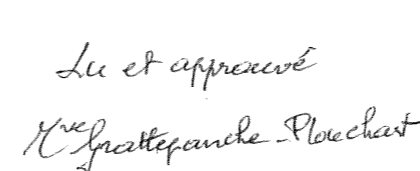 Lu et approuvé
Mve Grattepanche-Plouchart